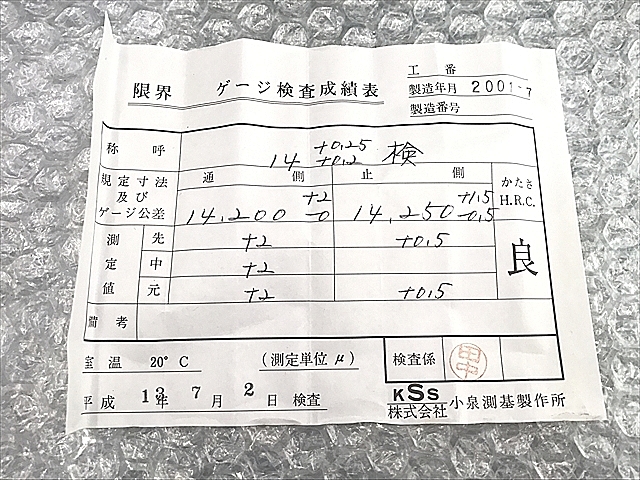 工 番
限界 ゲージ検査成績表
製造年月 2001-7
製造番号
称 呼 14 +0.25 +0.2 検
規定寸法及びゲージ公差 通 側 止 側 かたさ H.R.C.
14.200 +2 -0 14.250 +1.5 -0.5
測定値 先 +2 +0.5 良
中 +2
元 +2 +0.5
備 考
室 温 20°C (測定単位 μ) 検査係
平成 13年 7月 2日 検査
KSS 株式会社 小泉測基製作所